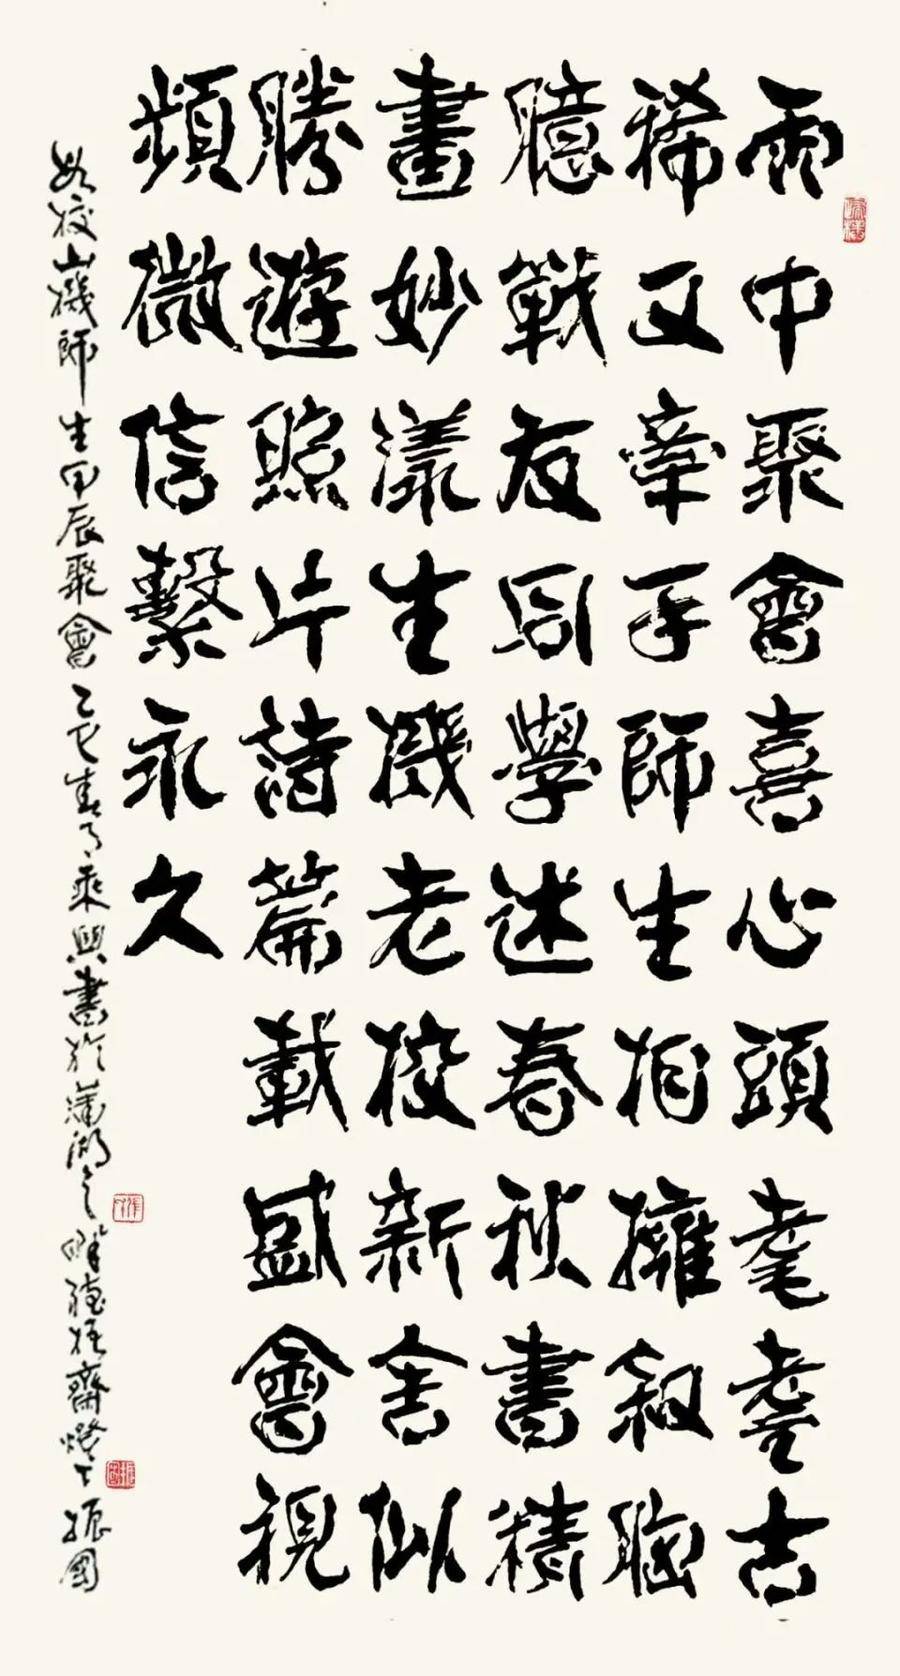 雨中聚會喜心頭耄耋古
稀又牽手師生相擁叙胸
臆戰友同學述春秋書積
畫妙漾生機老校新舍似
勝遊照片詩篇載盛會視
頻微信繫永久
母校山機師生甲辰聚會乙巳春月乘興書於蓮湖之 齋燈下振國